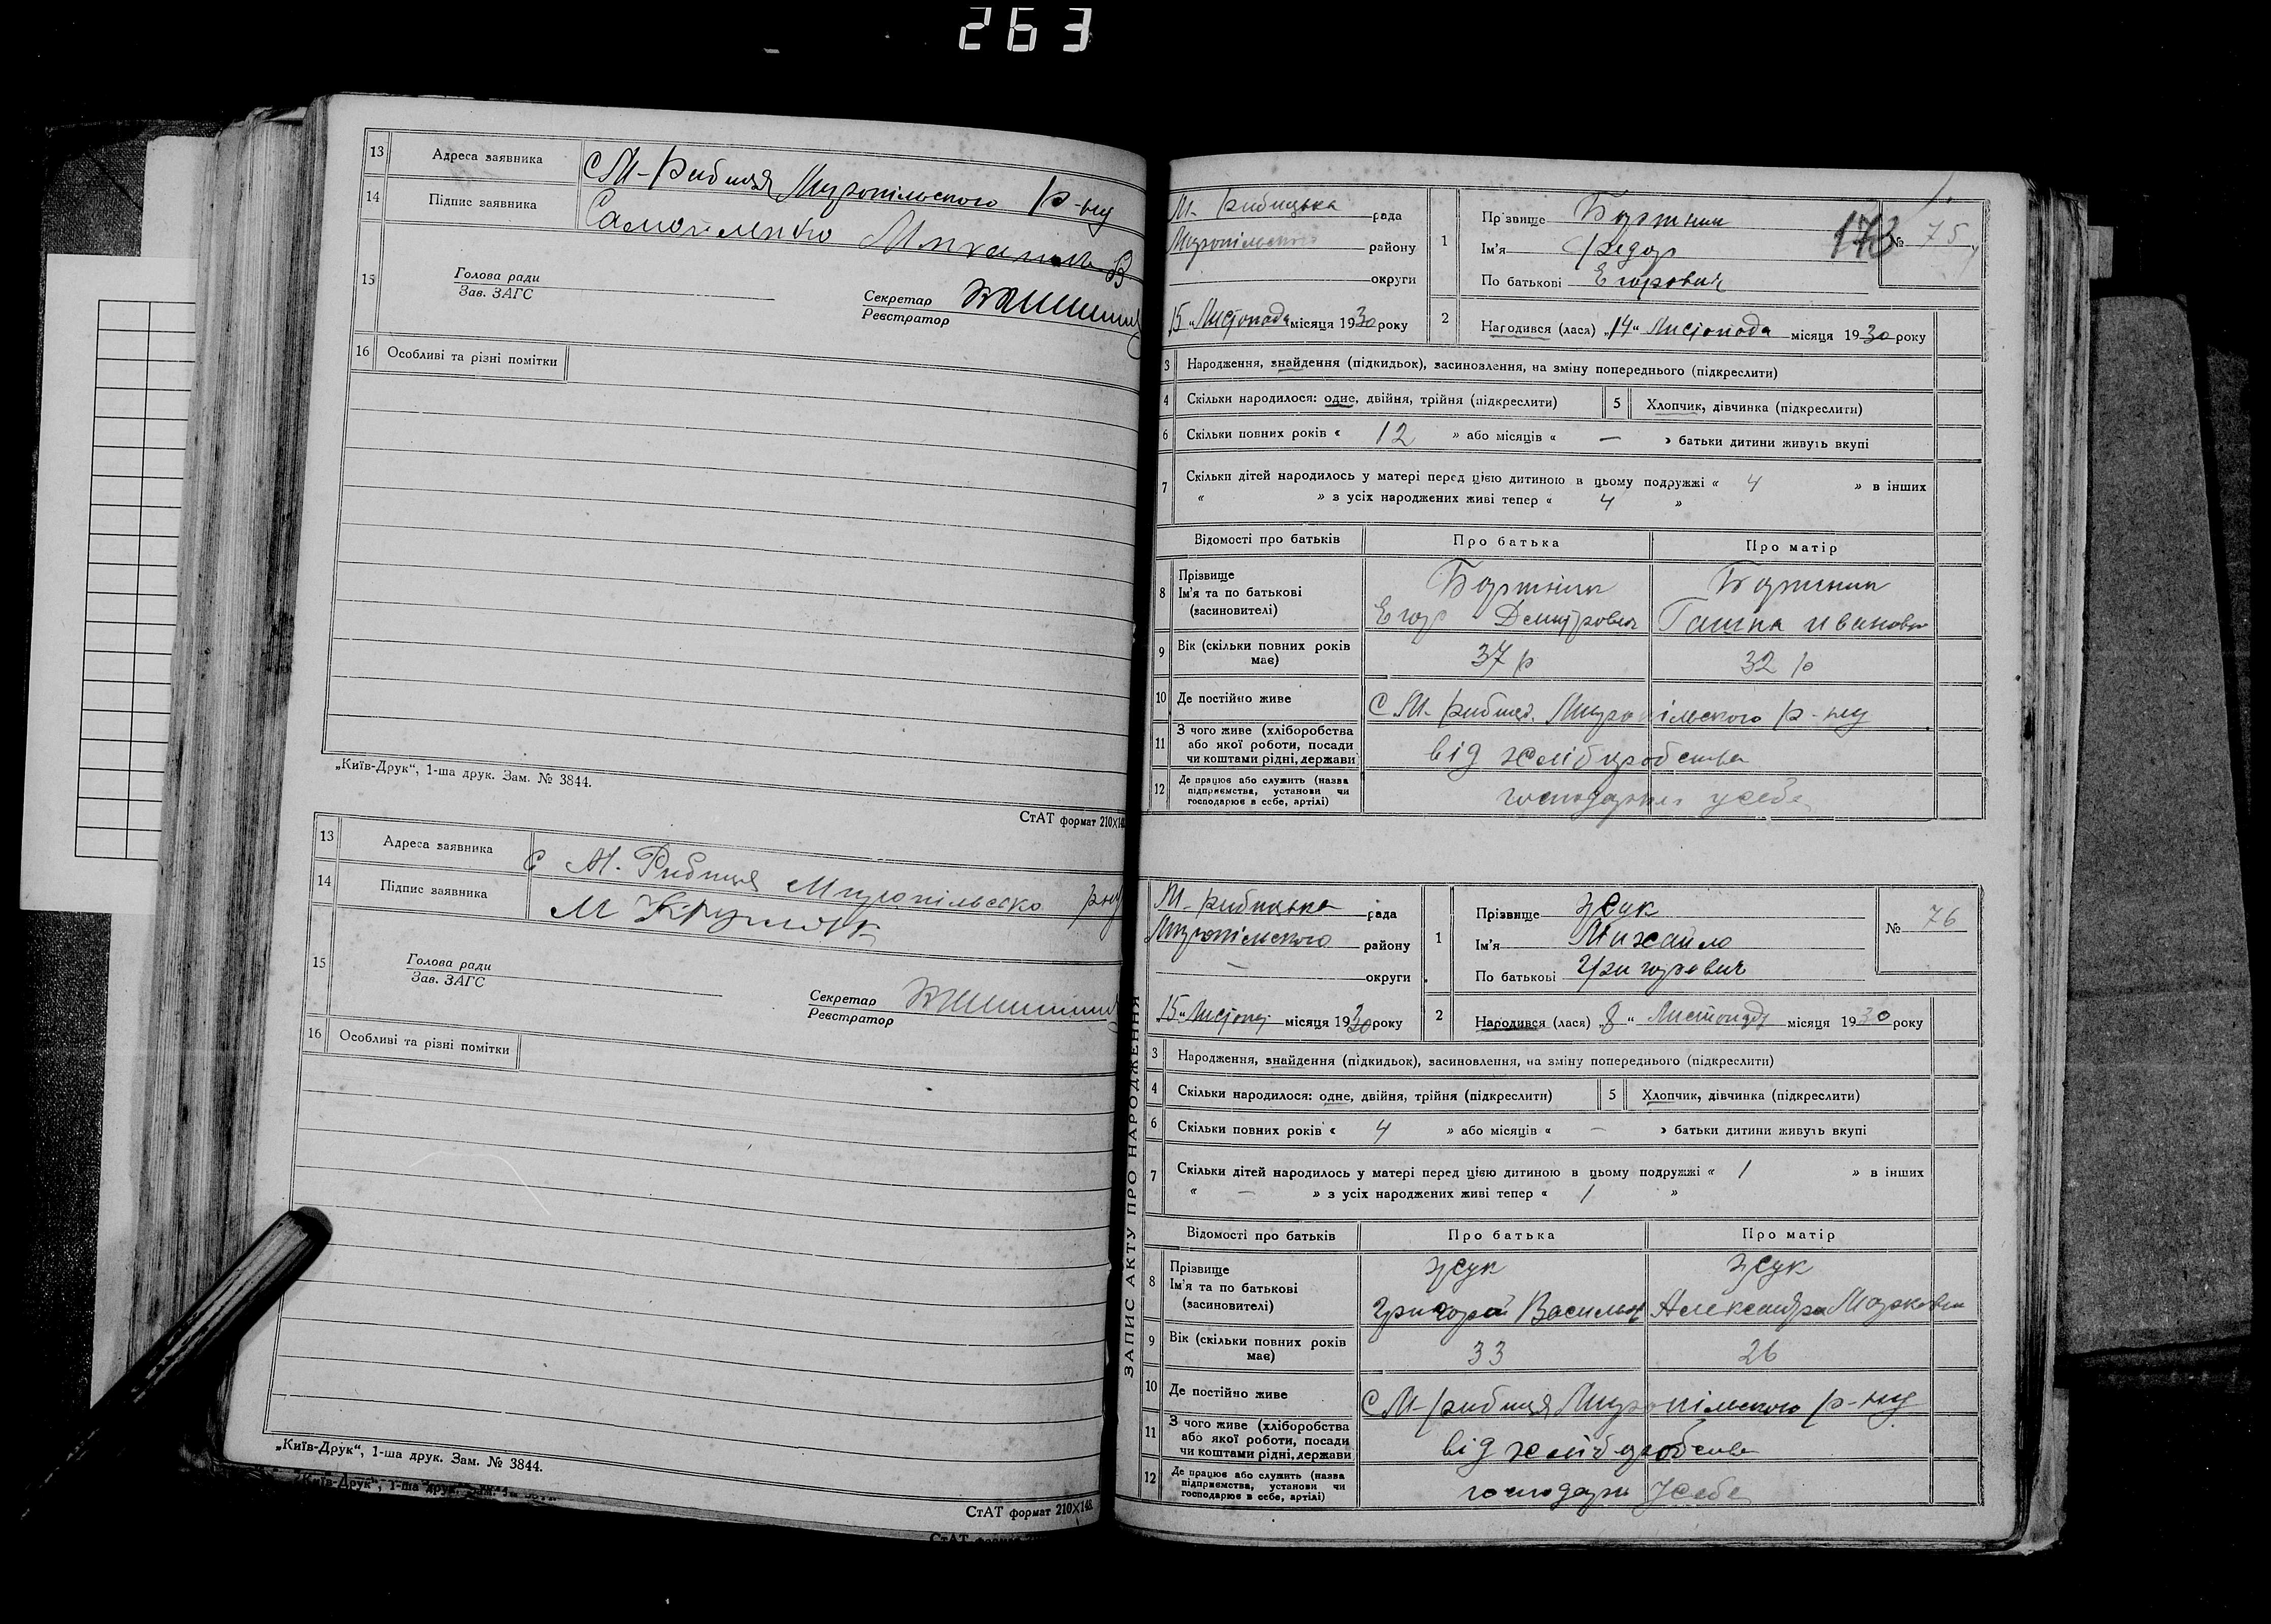 263
13 Адреса заявника С М-Рибиця Миропільського р-ну
14 Підпис заявника Самойленко
15 Голова ради
Зав. ЗАГС
Секретар
Реєстратор
16 Особливі та різні помітки
„Київ-Друк“, 1-ша друк. Зам. № 3844.
СтАТ формат 210×148
13 Адреса заявника С М. Рибиця Миропільсько рну
14 Підпис заявника М
15 Голова ради
Зав. ЗАГС
Секретар
Реєстратор
16 Особливі та різні помітки
„Київ-Друк“, 1-ша друк. Зам. № 3844.
СтАТ формат 210×148
М- Рибицька рада
Миропільского району
округи
15 „ Листопада місяця 1930 року
1 Прізвище Бортник
Ім'я Федор
По батькові Егорович
173
№ 75
2 Народився (лася) „14“ Листопада місяця 1930 року
3 Народження, знайдення (підкидьок), засиновлення, на зміну попереднього (підкреслити)
4 Скільки народилося: одне, двійня, трійня (підкреслити) 5 Хлопчик, дівчинка (підкреслити)
6 Скільки повних років « 12 » або місяців « — » батьки дитини живуть вкупі
7 Скільки дітей народилось у матері перед цією дитиною в цьому подружжі « 4 » в інших
« » з усіх народжених живі тепер « 4 »
Відомості про батьків Про батька Про матір
8 Прізвище Бортник Бортник
Ім'я та по батькові
(засиновителі) Егор Дмитрович Ганна Ивановн
9 Вік (скільки повних років має) 37 р 32 р
10 Де постійно живе С М- Рибиця Миропільского р-ну
11 З чого живе (хліборобства
або якої роботи, посади
чи коштами рідні, держави від хліборобства
12 Де працює або служить (назва
підприємства, установи чи
господарює в себе, артілі) усебе
ЗАПИС АКТУ ПРО НАРОДЖЕННЯ
М- Рибицька рада
Миропільского району
— округи
15 „ місяця 1930 року
1 Прізвище Жук
Ім'я Михайло
По батькові Григорович
№ 76
2 Народився (лася) „8“ Листопада місяця 1930 року
3 Народження, знайдення (підкидьок), засиновлення, на зміну попереднього (підкреслити)
4 Скільки народилося: одне, двійня, трійня (підкреслити) 5 Хлопчик, дівчинка (підкреслити)
6 Скільки повних років « 4 » або місяців « — » батьки дитини живуть вкупі
7 Скільки дітей народилось у матері перед цією дитиною в цьому подружжі « 1 » в інших
« — » з усіх народжених живі тепер « 1 »
Відомості про батьків Про батька Про матір
8 Прізвище Жук Жук
Ім'я та по батькові
(засиновителі) Григорій Васильов Александра Марковна
9 Вік (скільки повних років має) 33 26
10 Де постійно живе С М- Рибиця Миропільского р-ну
11 З чого живе (хліборобства
або якої роботи, посади
чи коштами рідні, держави від хліборобства
12 Де працює або служить (назва
підприємства, установи чи
господарює в себе, артілі) усебе